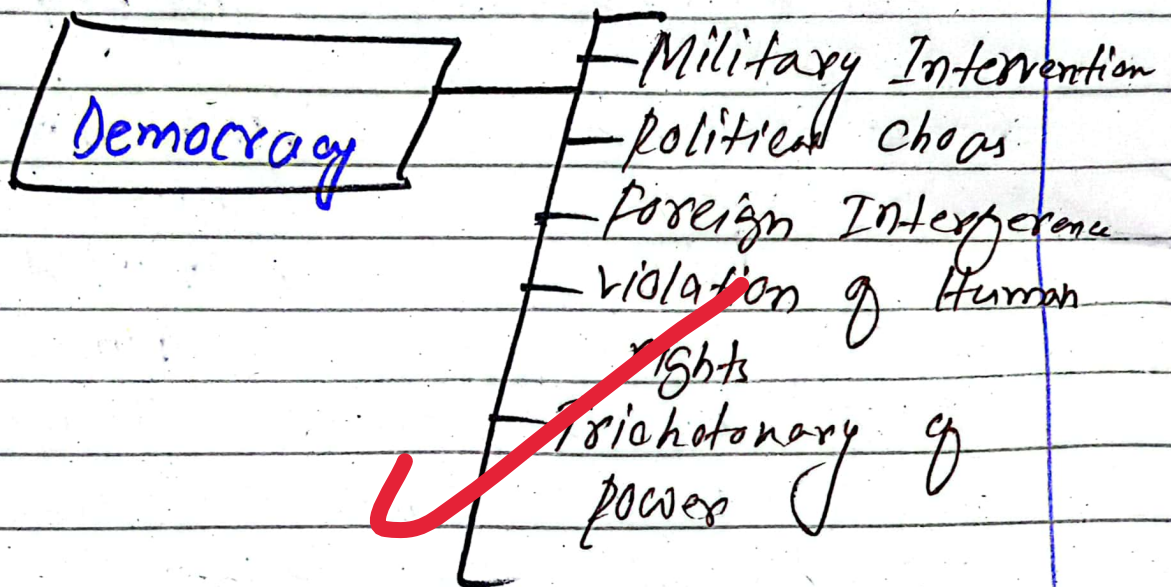 Democracy
Military Intervention
Political Choas
Foreign Interference
Violation of Human
rights
Trichotonary of
power